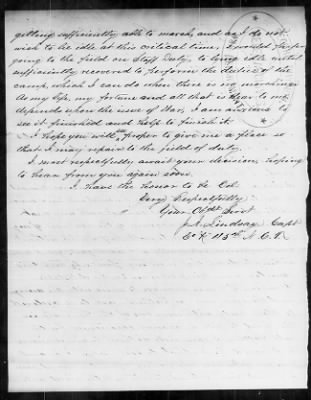 getting sufficiently able to march, and as I do not
wish to be idle at this critical time, I would prefer
going to the field on Staff Duty, to being idle until
sufficiently recovered to perform the duties of the
camp, which I can do when there is no marching
As my life, my fortune and all that is dear to me
depends upon the issue of War, I am anxious to
see it finished and help to finish it.
I hope you will see proper to give me a place so
that I may repair to the field of duty.
I most respectfully await your decision, hoping
to hear from you again soon.
I have the honor to be Col.
Very Respectfully
Your Obdt Servt
J. A. Lindsay Capt
Co K